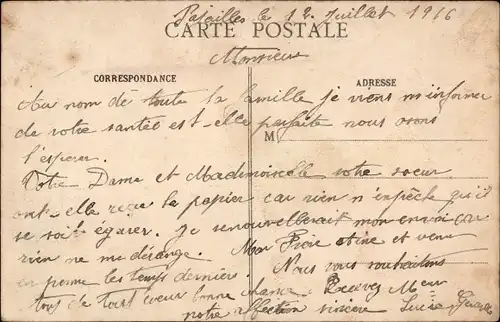 Batailles le 12 Juillet 1916
CARTE POSTALE
Monsieur
CORRESPONDANCE
ADRESSE
Au nom de toute la famille je viens m'informer
de votre santée est-elle parfaite nous osons
M
l'esperer.
Votre Dame et Mademoiselle votre soeur
ont-elle reçu le papier car rien n'enpèche qu'il
se soit égarer. Je renouvellerait mon envoi car
rien ne me dérange. Mon Frère et venu
en perme les temps dernière. Nous vous souhaitons
tous de tout coeur bonne chance. Recevez Meur
notre affection sincère Lucie